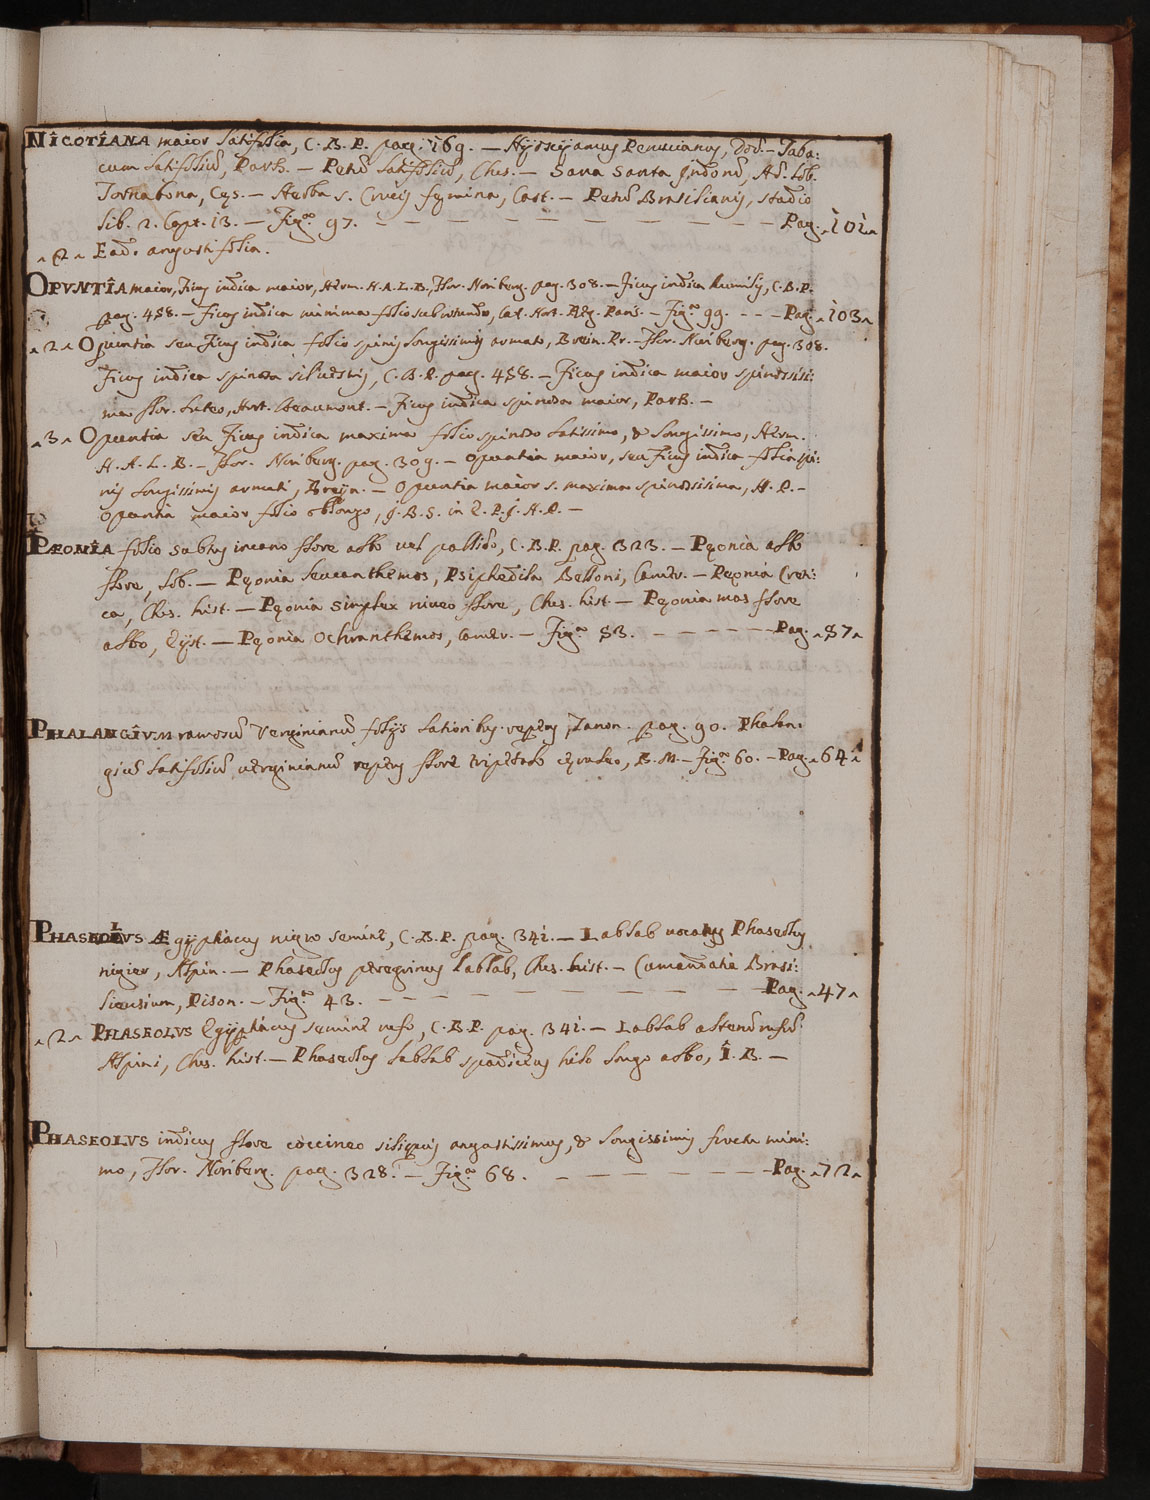 NICOTIANA maior latifolia, C. B. P. pag. 169. — Hÿosciyamus Peruvianus, Dod. — Taba:
cum latifoliũ, Park. — Petũ latifoliũ, Clus. — Sana Santa Indorũ, Ad. Lob.
Tornabona, Cęs. — Herba s. Crucis fęmina, Cast. — Petũ Brasilianis, stadio
lib. 2. Cap. 13. — Fig.ª 97. — — — — — — — — — Pag. 101
2 Ead. angustifolia.
OPVNTIA maior, Ficus indica maior, Herm. H. A. L. B., Flor. Noriberg. pag. 308. — Ficus indica humilis, C. B. P.
pag. 458. — Ficus indica minima folio subrotundo, Cat. Hort. Reg. Paris. — Fig.ª 99. - - - Pag. 103
2 Opuntia seu Ficus indica folio spinis longissimis armato, Brein. Pr. — Flor. Noriberg. pag. 308.
Ficus indica spinosa, C. B. P. pag. 458. — Ficus indica maior spinosissi:
ma flor. luteo, Hort. Beaumont. — Ficus indica spinosa maior, Park. —
3 Opuntia seu Ficus indica maxima folio spinoso latissimo, & longissimo, Herm.
H. A. L. B. — Flor. Noriberg. pag. 309. — opuntia maior, seu Ficus indica folia spi:
nis longissimis armati, Breÿn. — Opuntia maior s. maxima spinosissima, H. P. —
Opuntia maior folio oblongo, J. B. S. in E. P. J. H. P. —
PÆONIA folio subtus incano flore albo uel pallido, C. B. P. pag. 323. — Pęonia albo
flore, Lob. — Pęonia leucanthemos, Psiphedila Belloni, Camer. — Pęonia Creti:
ca, Clus. hist. — Pęonia simplex niueo flore, Clus. hist. — Pęonia mas flore
albo, Eÿst. — Pęonia ochranthemos, Camer. — Fig.ª 53. — — — — — — Pag. 57
PHALANGIVM ramosũ Verginianũ folÿs latioribus repens, Zanon. pag. 90. Phalan:
giũ latifoliũ uerginianũ repens flore tripetalo cęruleo, B. M. — Fig.ª 60. — Pag. 64
PHASEOLVS Ægÿptiacus nigro semine, C. B. P. pag. 341. — Lablab uocatus Phaseolus
nigier, Alpin. — Phaseolus peregrinus lablab, Clus. hist. — Cumandatià Brasi:
liensium, Pison. — Fig.ª 43. — — — — — — — — — — Pag. 47
2 PHASEOLVS Egÿptiacus semine rufo, C. B. P. pag. 341. — Lablab alterũ rufũ
Alpini, Clus. hist. — Phaseolus lablab spadiceus hilo longo albo, I. B. —
PHASEOLVS indicus flore coccineo siliquis angustissimis, & longissimis fructu mini:
mo, Flor. Noriberg. pag. 328. — Fig.ª 68. — — — — — — — Pag. 72